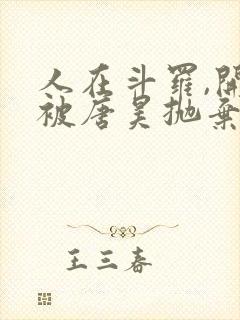 人在斗罗,開
被唐昊抛棄
王三春